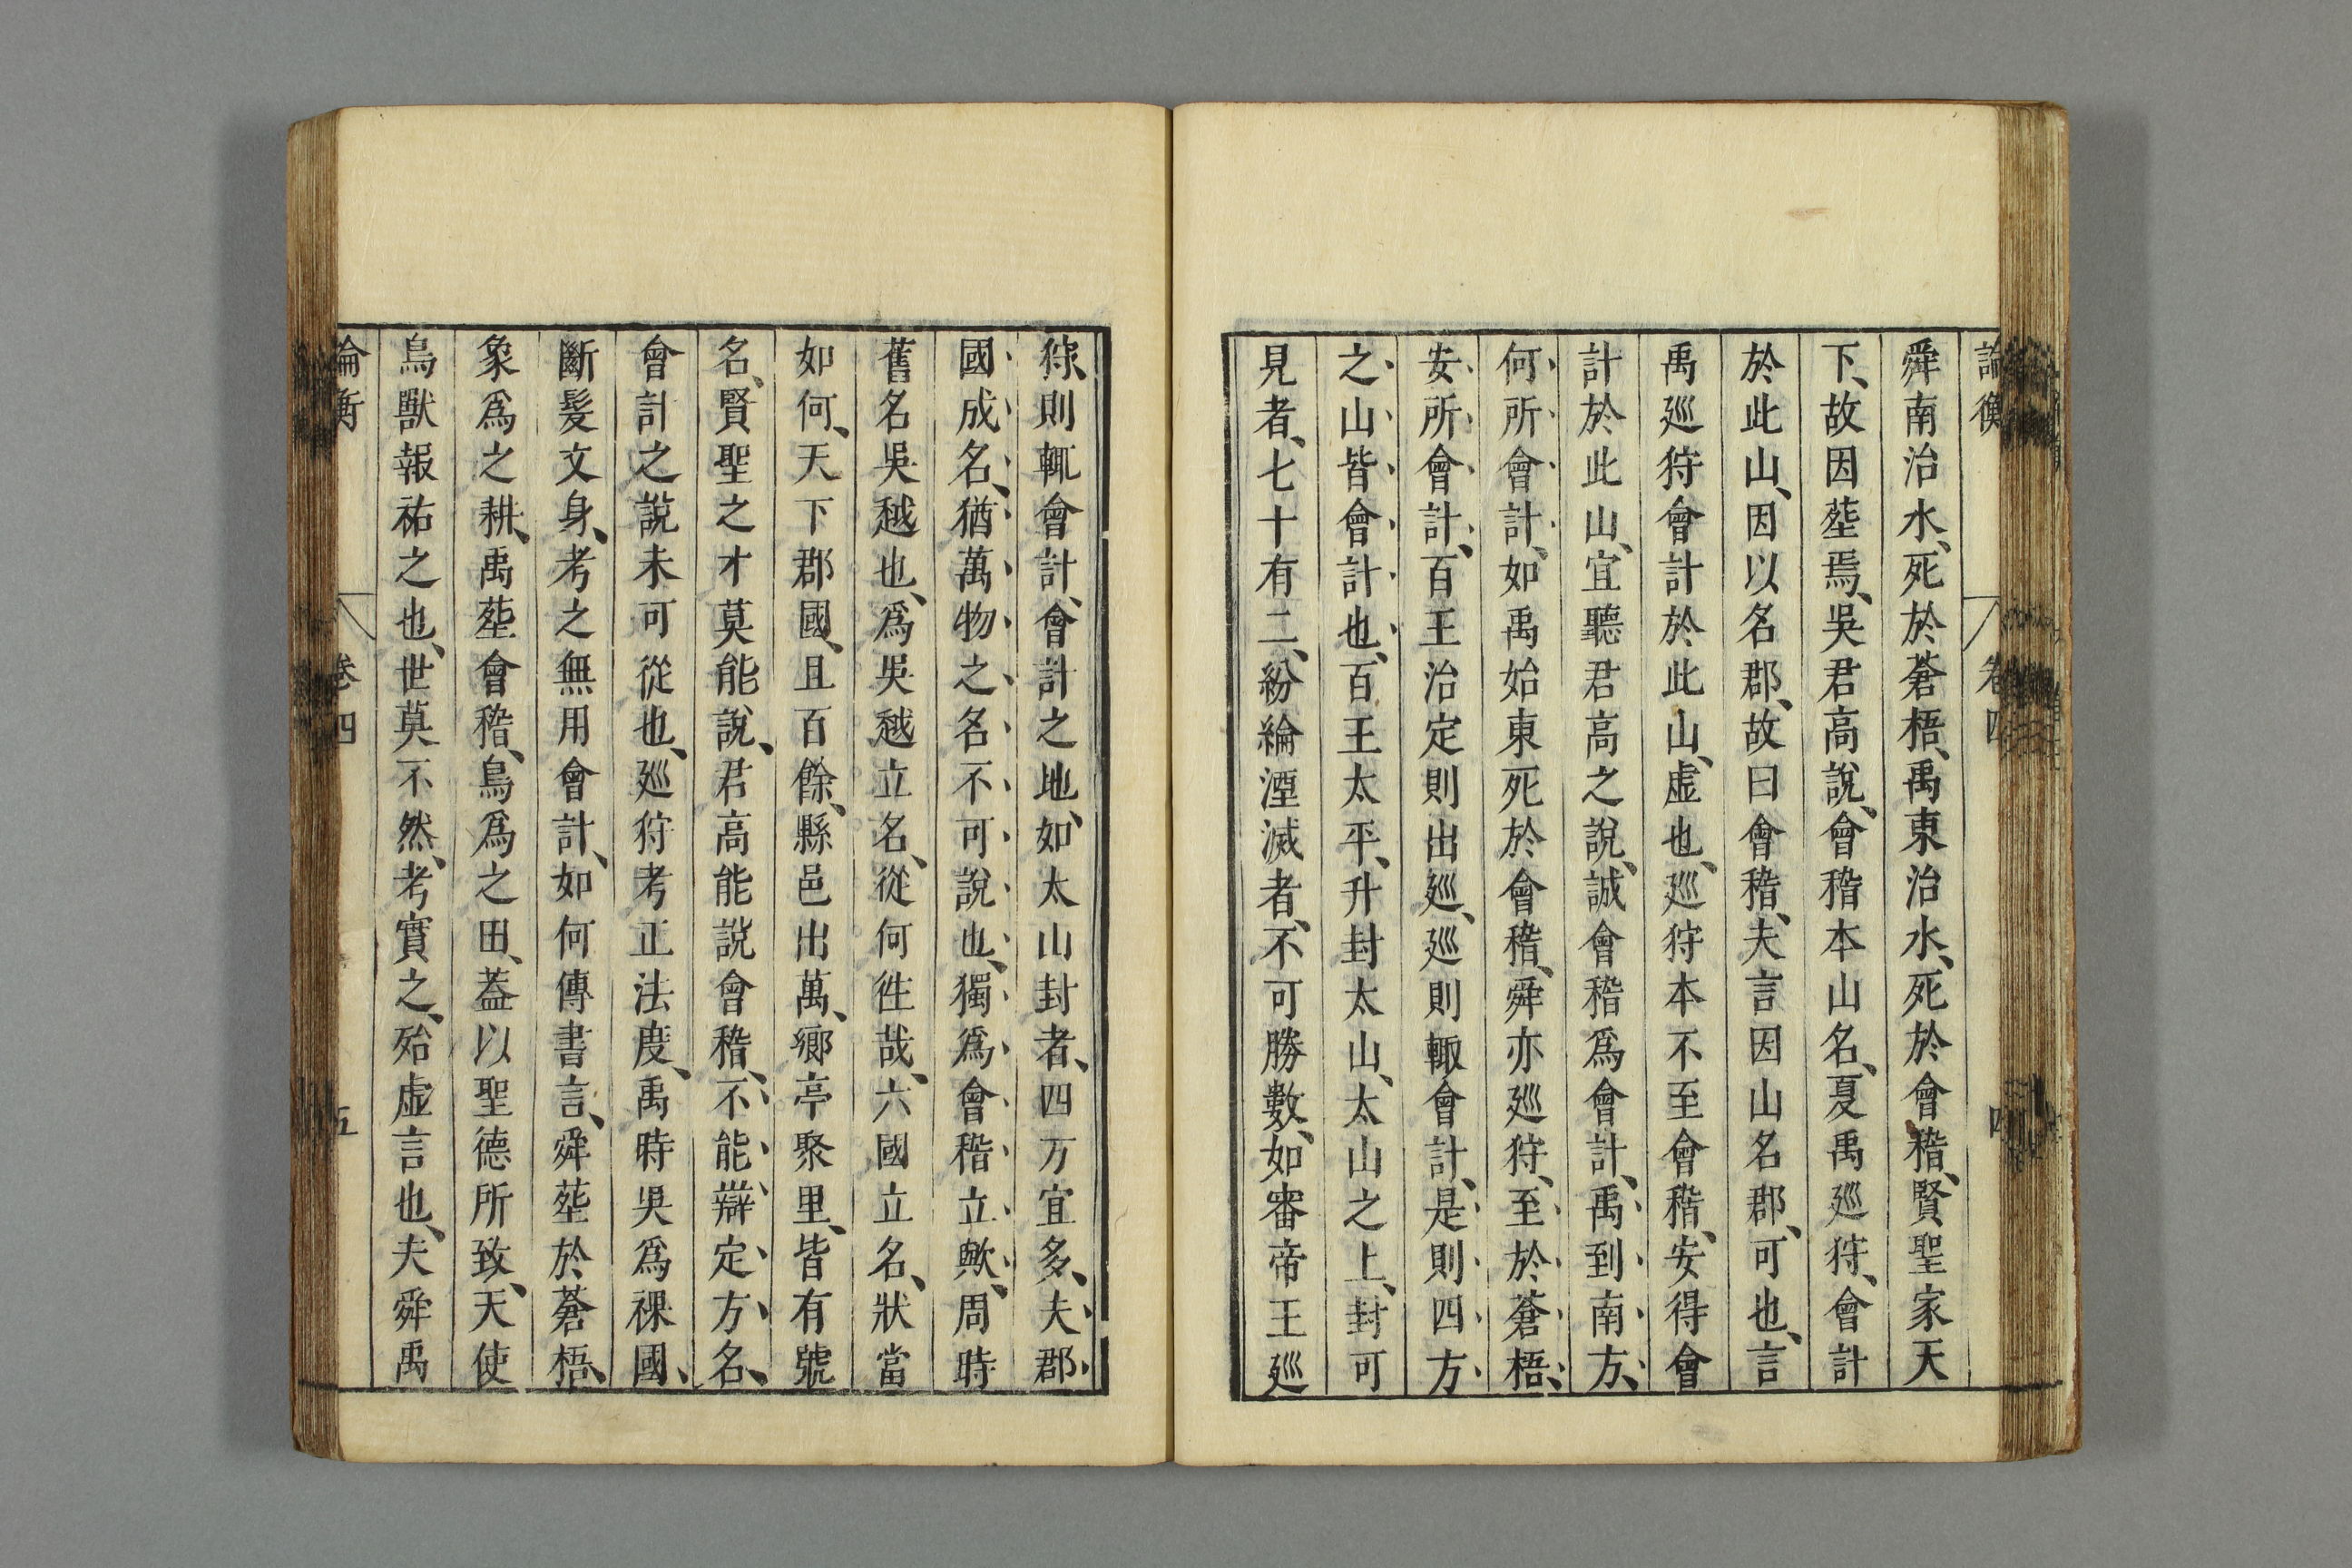 論衡 卷四 四
舜南治水、死於蒼梧、禹東治水、死於會稽、賢聖家天
下、故因塟焉、吳君高說、會稽本山名、夏禹廵狩、會計
於此山、因以名郡、故曰會稽、夫言因山名郡、可也、言
禹廵狩會計於此山、虛也、廵狩本不至會稽、安得會
計於此山、宜聽君高之說、誠會稽爲會計、禹到南方、
何所會計、如禹始東死於會稽、舜亦廵狩、至於蒼梧、
安所會計、百王治定則出廵、廵則輙會計、是則四方
之山皆會計也、百王太平、升封太山、太山之上、封可
見者、七十有二、紛綸湮滅者、不可勝數、如審帝王廵
狩、則輒會計、會計之地、如太山封者、四方宜多、夫郡
國成名、猶萬物之名、不可說也、獨爲會稽立歟、周時
舊名吳越也、爲吳越立名、從何徃哉、六國立名、狀當
如何、天下郡國、且百餘、縣邑出萬、鄉亭聚里、皆有號
名、賢聖之才莫能說、君高能說會稽、不能辯定方名、
會計之說未可從也、廵狩考正法度、禹時吳爲裸國、
斷髮文身、考之無用會計、如何傳書言、舜塟於蒼梧、
象爲之耕、禹塟會稽、烏爲之田、蓋以聖德所致、天使
鳥獸報祐之也、世莫不然、考實之、殆虛言也、夫舜禹
論衡 卷四 五